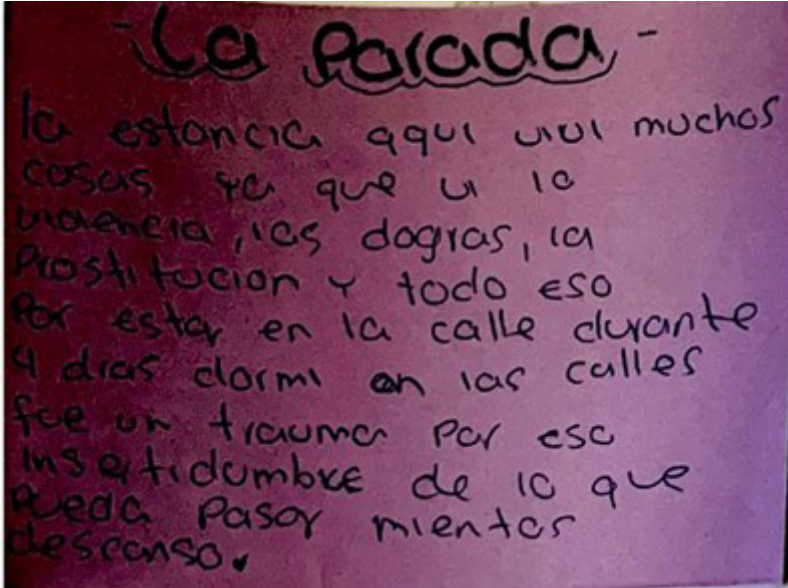 - La Parada -
la estancia aqui vivi muchas
cosas ya que vi la
violencia, las dogras, la
Prostitucion y todo eso
Por estar en la calle durante
4 dias dormi en las calles
fue un trauma por esa
insertidumbre de lo que
pueda pasar mientas
descanso.